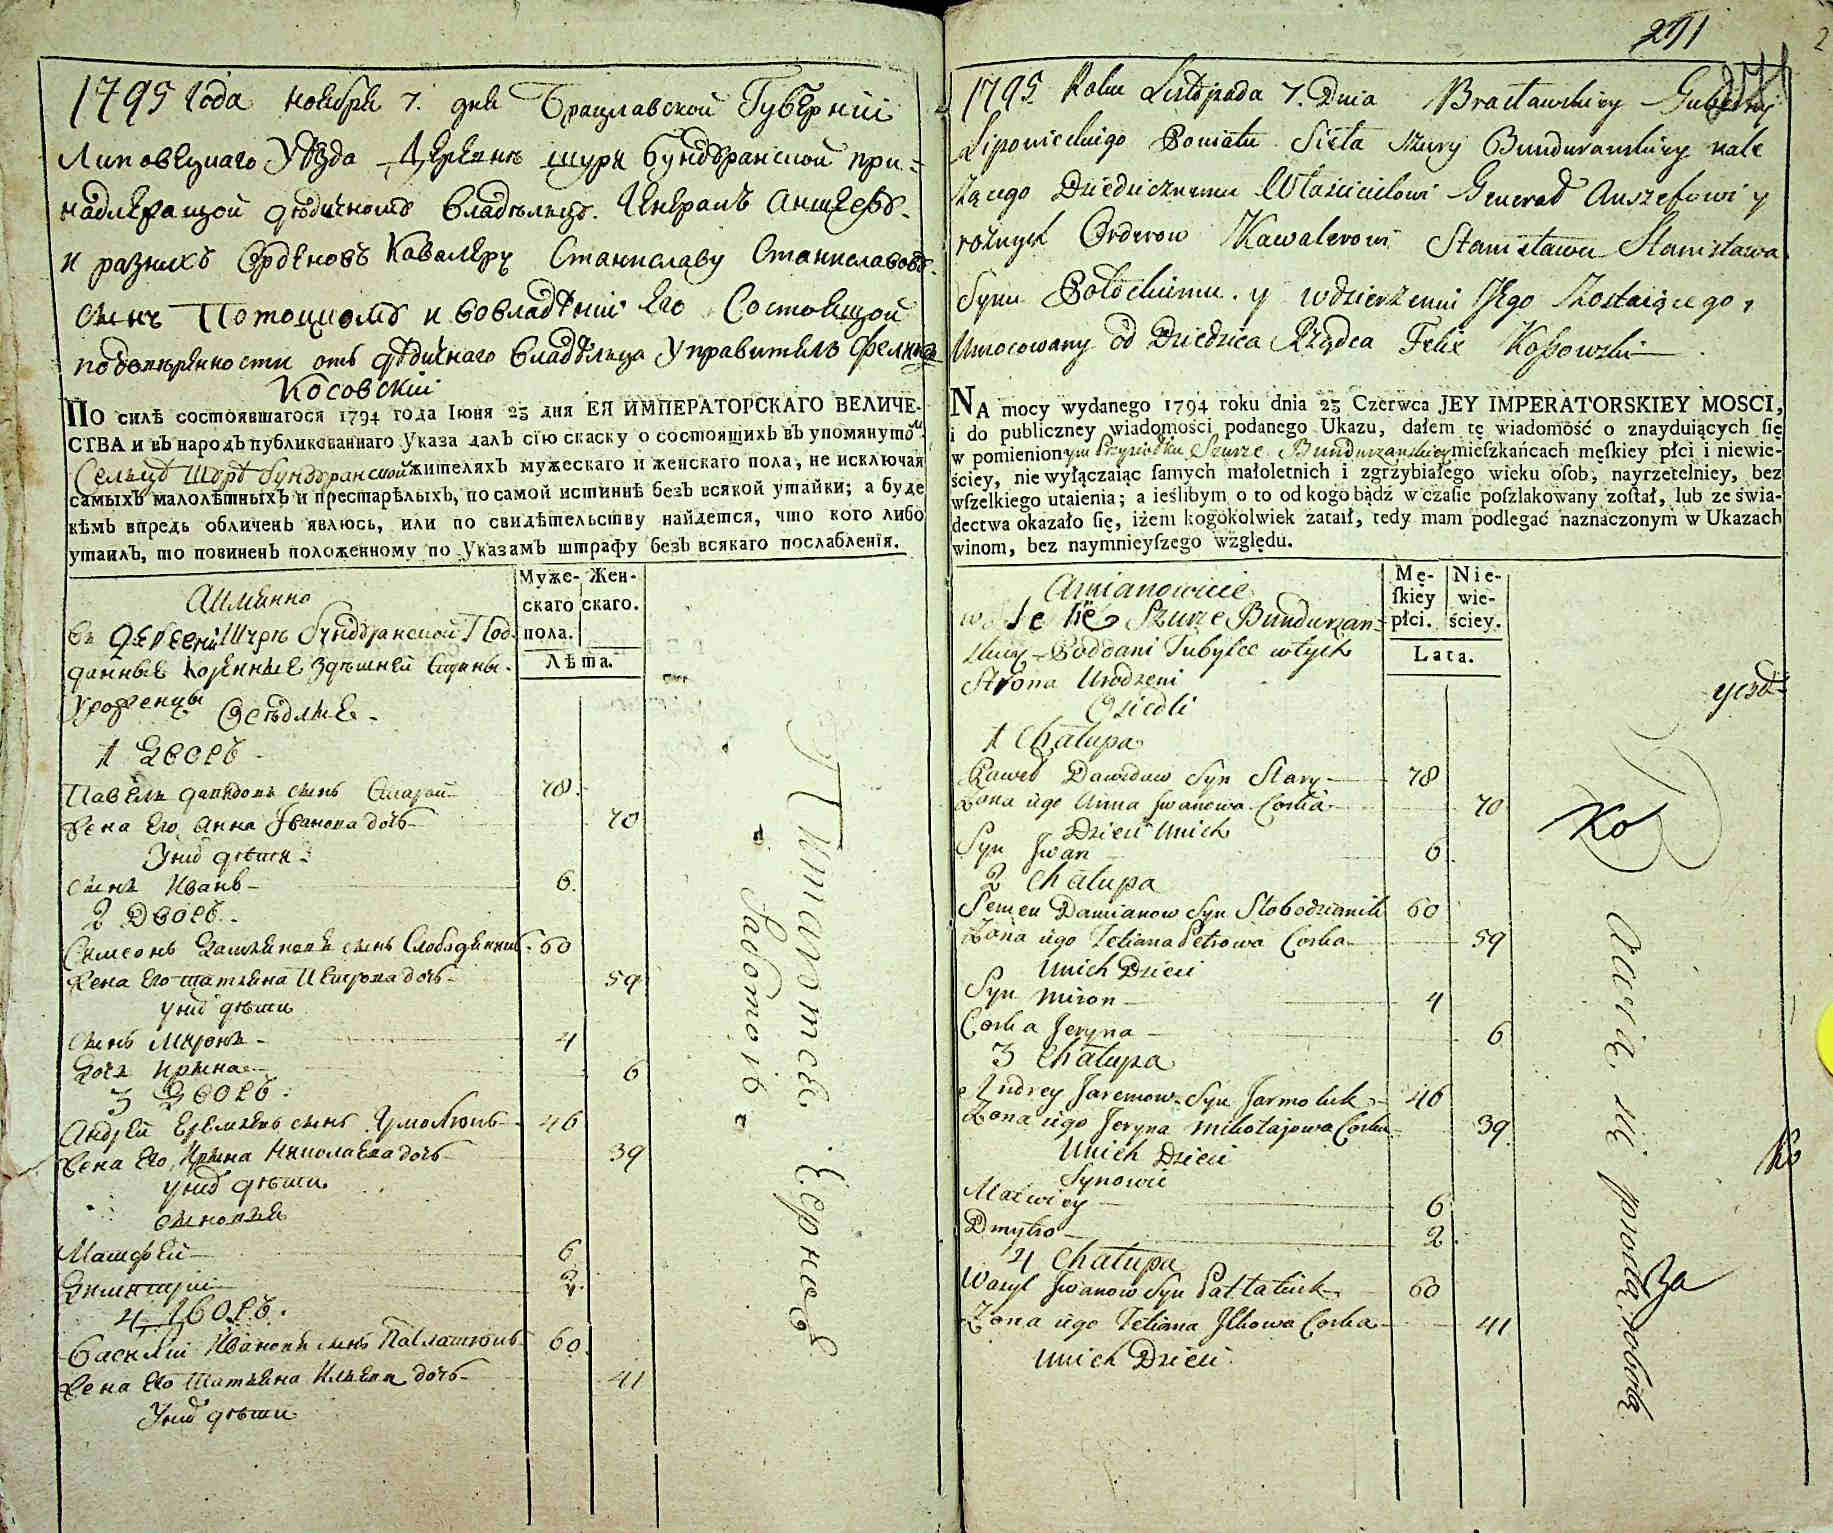 1795 Года ноября 7. дня Брацлавской Губерніи
Липовецкаго Уѣзда Деревни Щуры Бундуранской при-
надлежащой дѣдичному владѣльцу. Генералъ Аншефу
и разныхъ Орденовъ Кавалеру Станиславу Станиславову
сыну Потоцкому и во владѣніи Его Состоящой
по довѣренности отъ дѣдичнаго владѣльца Управитель Феликсъ
Косовскій
ПО силѣ состоявшагося 1794 года Іюня 23 дня ЕЯ ИМПЕРАТОРСКАГО ВЕЛИЧЕ-
СТВА и въ народъ публикованнаго Указа далъ сію скаску о состоящихъ въ упомянутом
Сельцѣ Щурѣ Бундуранской жителяхъ мужескаго и женскаго пола, не исключая
самыхъ малолѣтныхъ и престарѣлыхъ, по самой истиннѣ безъ всякой утайки; а буде
кѣмъ впредь обличенъ явлюсь, или по свидѣтельству найдется, что кого либо
утаилъ, то повиненъ положенному по Указамъ штрафу безъ всякаго послабленія.
Аимянно
Муже- Жен-
скаго скаго.
пола.
Лѣта.
въ Деревни Щурѣ Бундуранской Под-
данные коренные здѣшней Стороны
Уроженцы Осѣдлые
1 Дворъ
Павелъ Давидовъ сынъ Старой 78.
Жена Его Анна Иванова дочь 70
У них дѣти
сынъ Иванъ 6.
2 Дворъ
Симеонъ Дамяновъ сынъ Слободяникъ 60
Жена Его Татьяна Петрова дочь 59
У них дѣти
сынъ Миронъ 4
Дочь Ирина 6
3 Дворъ
Андрей Еремѣевъ сынъ Ярмолюкъ 46
Жена Его Ирина Николаева дочь 39
У них дѣти
сыновья
Матфей 6
Димитрій 2.
4 Дворъ
Василій Ивановъ сынъ Паллатюкъ 60.
Жена Его Татьяна Ильина дочь 41
У них дѣти
291
1795 Roku Listopada 7. Dnia Bracławskiey Gubernij
Lipowieckiego Powiatu Sieła Szury Bunduranskiey nale
żącego Dziedzicznemu Właścicielowi Generał Anszefowi y
rożnych Orderow Kawalerowi Stanisławu Stanisława
Synu Potockiemu y w dzierżeniu Jego Zostaiącego,
Umocowany od Dziedzica Rządca Felix Kossowski
NA mocy wydanego 1794 roku dnia 23 Czerwca JEY IMPERATORSKIEY MOSCI,
i do publiczney wiadomości podanego Ukazu, dałem tę wiadomość o znayduiących ſię
w pomienionym Przysiołku Szurze Bunduranskiey mieszkańcach męſkiey płci i niewie-
ściey, nie wyłączaiąc ſamych małoletnich i zgrzybiałego wieku oſob, nayrzetelniey, bez
wſzelkiego utaienia; a ieślibym o to od kogo bądź w czaſie poſzlakowany zoſtał, lub ze świa-
dectwa okazało ſię, iżem kogokolwiek zataił, tedy mam podlegać naznaczonym w Ukazach
winom, bez naymnieyſzego względu.
Amianowicie
Mę- Nie-
ſkiey wie-
płci. ściey.
Lata.
w Siele Szurze Bunduran-
skiey Poddani Tubylce w tych
Strona Urodzeni
Osiedli
1 Chałupa
Paweł Dawidow Syn Stary 78
Zona iego Anna Jwanowa Corka 70
Dzieci Unich
Syn Jwan 6
2 Chałupa
Semen Damianow Syn Słobodzianik 60
Zona iego Tetiana Petrowa Corka 59
Unich Dzieci
Syn Miron 4
Corka Jeryna 6
3 Chałupa
Andrey Jaremow Syn Jarmoluk 46
Zona iego Jeryna Mikołajowa Corka 39
Unich Dzieci
Synowie
Matwiey 6
Dmytro 2
4 Chałupa
Wasyl Jwanow Syn Pałłatiuk 60
Zona iego Tetiana Jlkowa Corka 41
Unich Dzieci
Ko
Ko
za